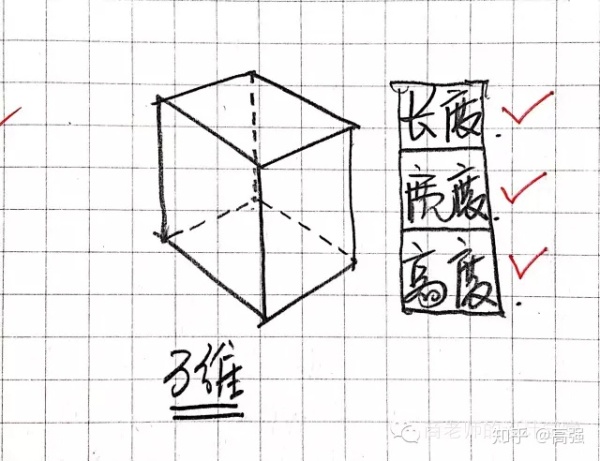 长度.
宽度.
高度.
3维
知乎 @高强